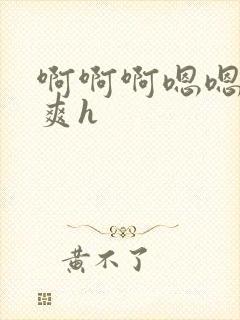 啊啊啊嗯嗯
爽h
黄不了